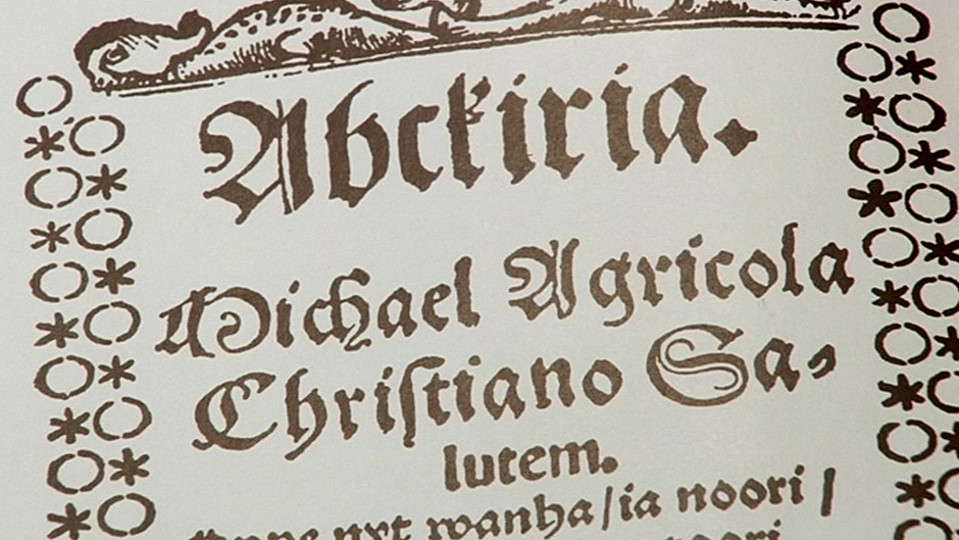 Abckiria.
Michael Agricola
Christiano Sa,
lutem.
nyt wanha/ia noori /
noori